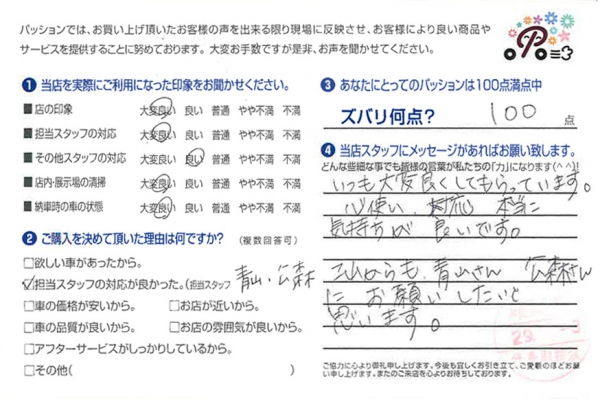 パッションでは、お買い上げ頂いたお客様の声を出来る限り現場に反映させ、お客様により良い商品や
サービスを提供することに努めております。大変お手数ですが是非、お声を聞かせてください。
❶ 当店を実際にご利用になった印象をお聞かせください。
■店の印象 大変良い 良い 普通 やや不満 不満
■担当スタッフの対応 大変良い 良い 普通 やや不満 不満
■その他スタッフの対応 大変良い 良い 普通 やや不満 不満
■店内・展示場の清掃 大変良い 良い 普通 やや不満 不満
■納車時の車の状態 大変良い 良い 普通 やや不満 不満
❷ ご購入を決めて頂いた理由は何ですか？ (複数回答可)
□欲しい車があったから。
☑担当スタッフの対応が良かった。(担当スタッフ 青山・公森
□車の価格が安いから。 □お店が近いから。
□車の品質が良いから。 □お店の雰囲気が良いから。
□アフターサービスがしっかりしているから。
□その他( )
❸ あなたにとってのパッションは100点満点中
ズバリ何点？ 100 点
❹ 当店スタッフにメッセージがあればお願い致します。
どんな些細な事でも皆様の言葉が私たちの「力」になります(^^)!
いつも大変良くしてもらっています。
心使い、対応 本当に
気持ちが 良いです。
これからも、青山さん 公森さん
に お願いしたいと
思います。
29. -3
ご協力に心より御礼申し上げます。今後も宜しくお引き立て、ご愛顧のほどお願
い申し上げます。またのご来店を心よりお待ちしております。